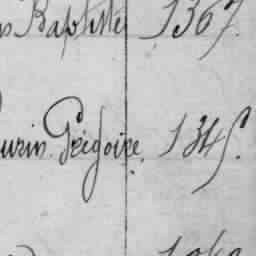 Baptiste 1367.
urin Grégoire. 1345.